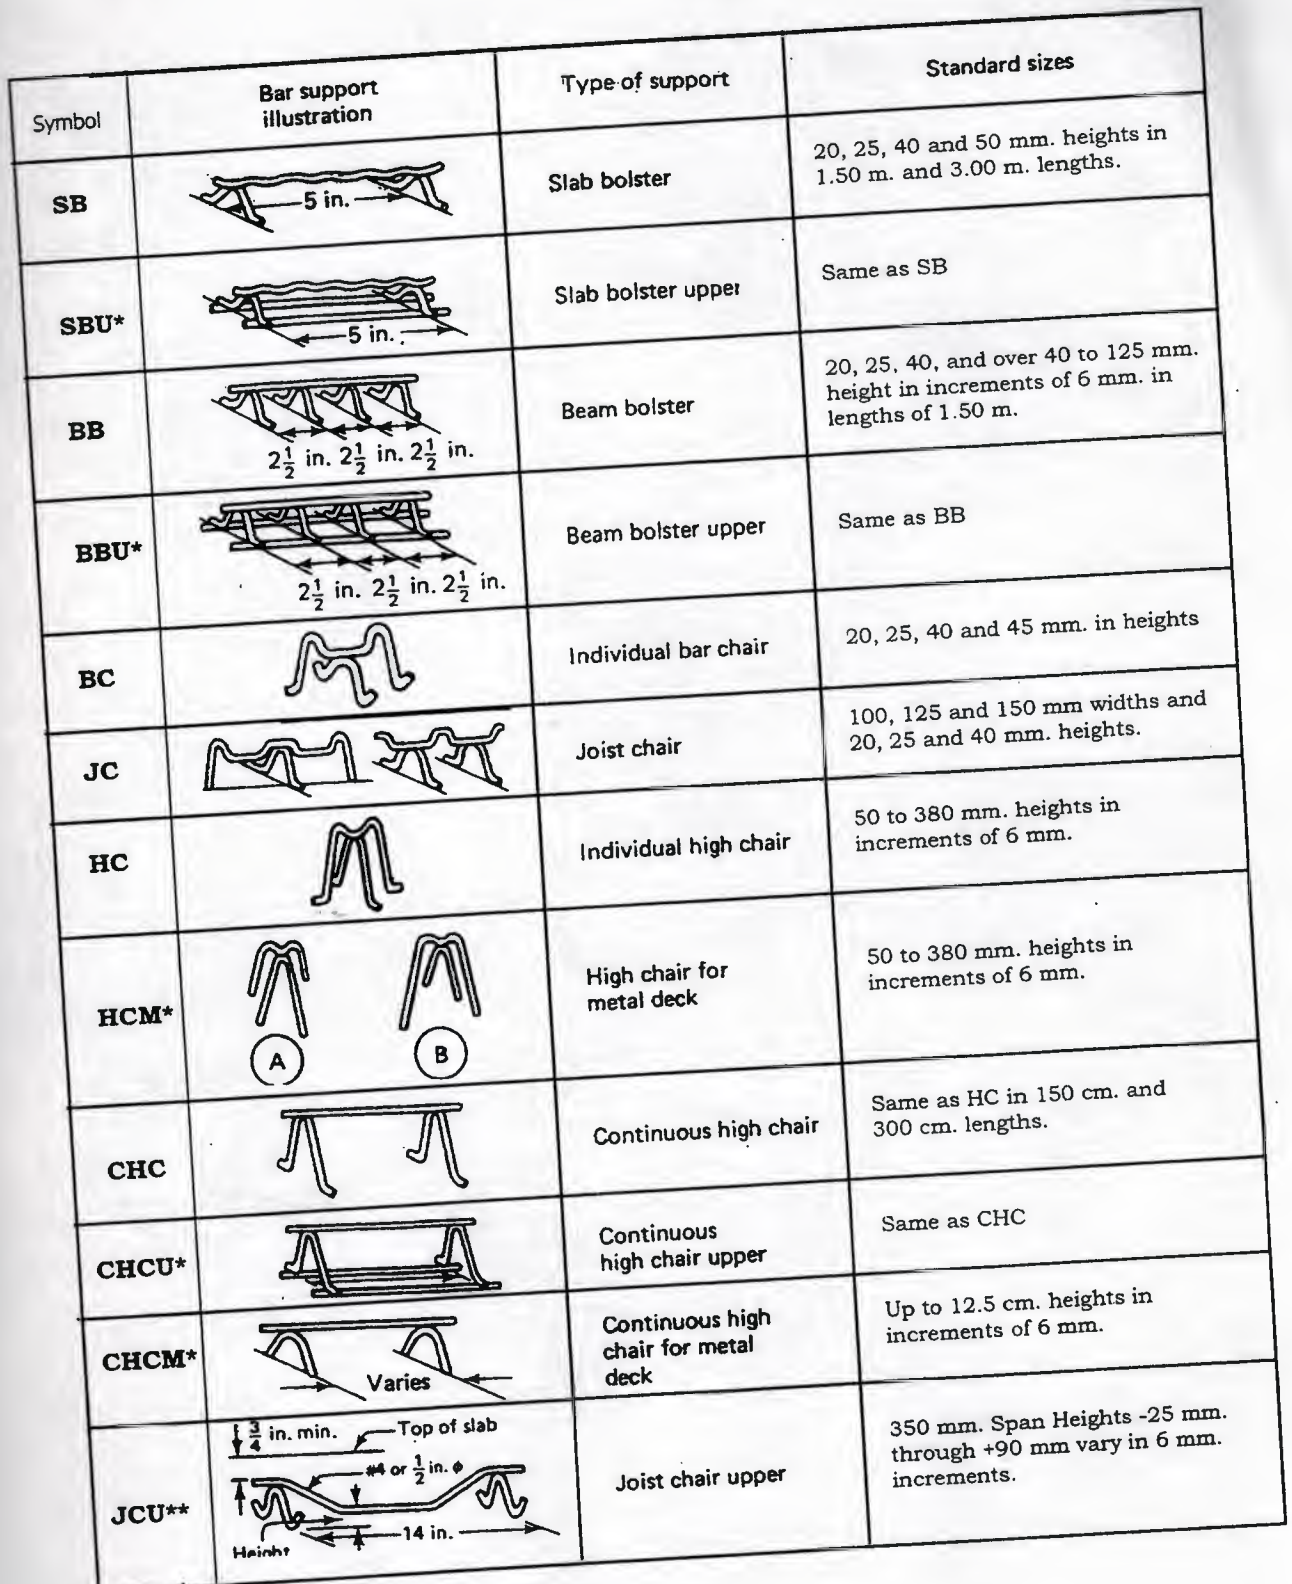 Symbol
Bar support
illustration
Type of support
Standard sizes
SB
5 in.
Slab bolster
20, 25, 40 and 50 mm. heights in
1.50 m. and 3.00 m. lengths.
SBU*
5 in.
Slab bolster upper
Same as SB
BB
2 1/2 in. 2 1/2 in. 2 1/2 in.
Beam bolster
20, 25, 40, and over 40 to 125 mm.
height in increments of 6 mm. in
lengths of 1.50 m.
BBU*
2 1/2 in. 2 1/2 in. 2 1/2 in.
Beam bolster upper
Same as BB
BC
Individual bar chair
20, 25, 40 and 45 mm. in heights
JC
Joist chair
100, 125 and 150 mm widths and
20, 25 and 40 mm. heights.
HC
Individual high chair
50 to 380 mm. heights in
increments of 6 mm.
HCM*
A
B
High chair for
metal deck
50 to 380 mm. heights in
increments of 6 mm.
CHC
Continuous high chair
Same as HC in 150 cm. and
300 cm. lengths.
CHCU*
Continuous
high chair upper
Same as CHC
CHCM*
Varies
Continuous high
chair for metal
deck
Up to 12.5 cm. heights in
increments of 6 mm.
JCU**
3/4 in. min.
Top of slab
#4 or 1/2 in. ϕ
14 in.
Height
Joist chair upper
350 mm. Span Heights -25 mm.
through +90 mm vary in 6 mm.
increments.